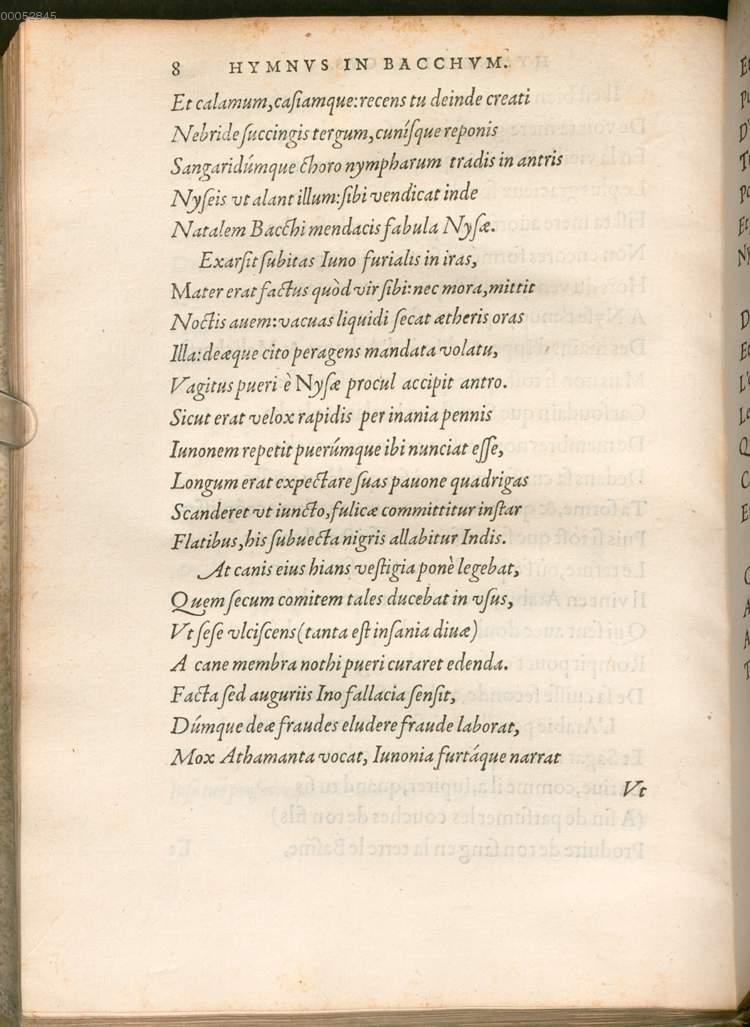 00052845
8 HYMNVS IN BACCHVM.
Et calamum, casiamque: recens tu deinde creati
Nebride succingis tergum, cunísque reponis
Sangaridúmque choro nympharum tradis in antris
Nyseis vt alant illum: sibi vendicat inde
Natalem Bacchi mendacis fabula Nysæ.
Exarsit subitas Iuno furialis in iras,
Mater erat factus quòd vir sibi: nec mora, mittit
Noctis auem: vacuas liquidi secat ætheris oras
Illa: deæque cito peragens mandata volatu,
Vagitus pueri è Nysæ procul accipit antro.
Sicut erat velox rapidis per inania pennis
Iunonem repetit puerúmque ibi nunciat esse,
Longum erat expectare suas pauone quadrigas
Scanderet vt iuncto, fulicæ committitur instar
Flatibus, his subuecta nigris allabitur Indis.
At canis eius hians vestigia ponè legebat,
Quem secum comitem tales ducebat in vsus,
Vt sese vlciscens (tanta est insania diuæ)
A cane membra nothi pueri curaret edenda.
Facta sed auguriis Ino fallacia sensit,
Dúmque deæ fraudes eludere fraude laborat,
Mox Athamanta vocat, Iunonia furtáque narrat
Vt